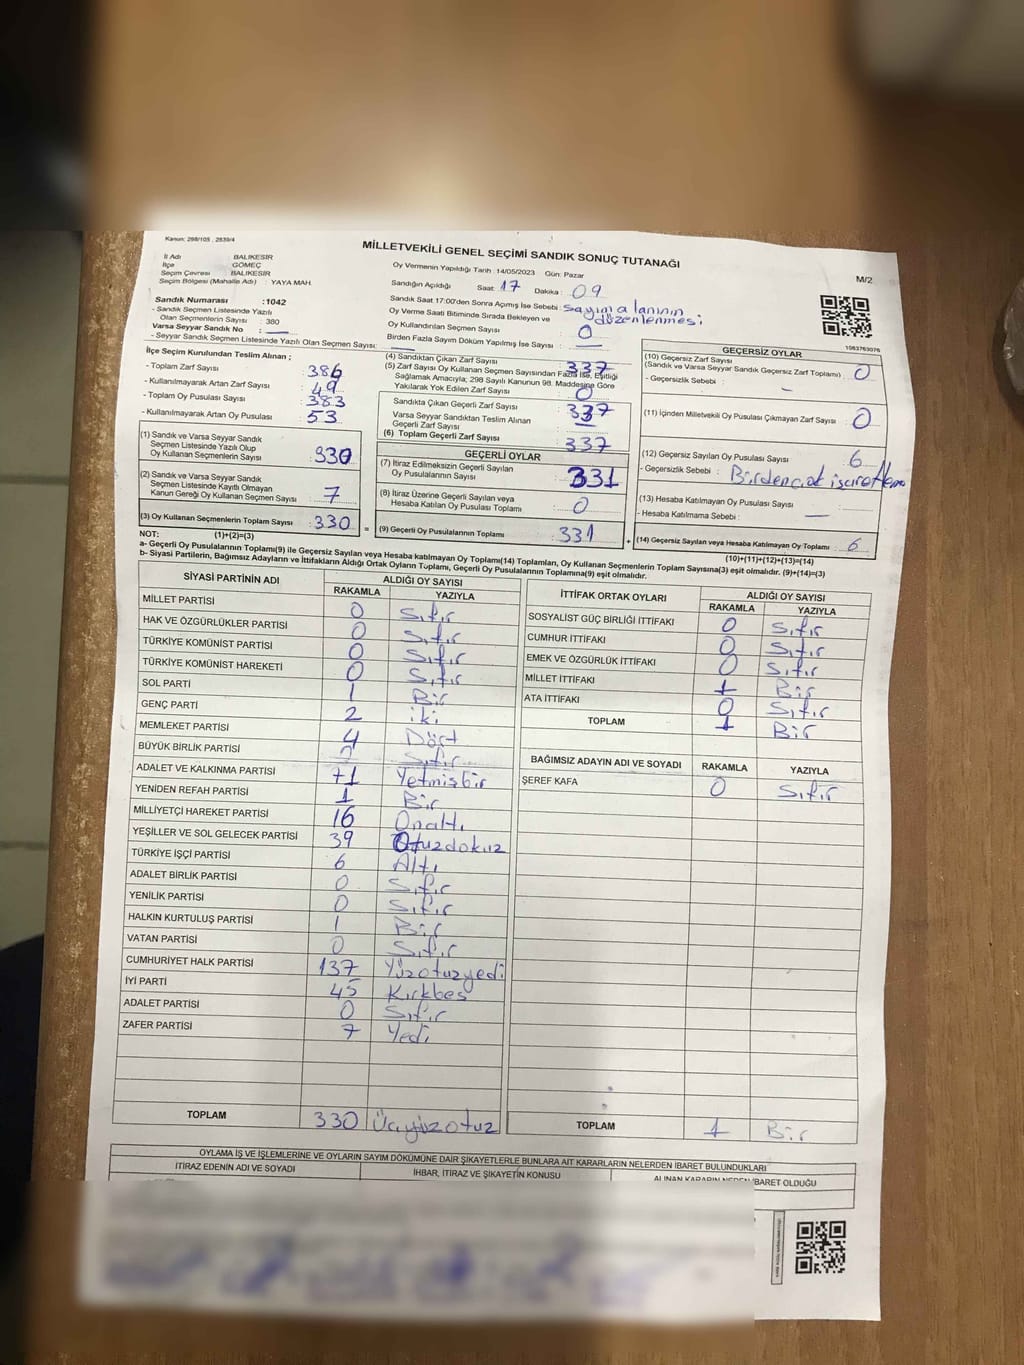 Kanun: 298/105 , 2839/4
MİLLETVEKİLİ GENEL SEÇİMİ SANDIK SONUÇ TUTANAĞI
M/2
İl Adı BALIKESİR
İlçe GÖMEÇ
Seçim Çevresi BALIKESİR
Seçim Bölgesi (Mahalle Adı) : YAYA MAH.
Sandık Numarası :1042
- Sandık Seçmen Listesinde Yazılı
Olan Seçmenlerin Sayısı : 380
Varsa Seyyar Sandık No :
- Seyyar Seçmen Listesinde Yazılı Olan Seçmen Sayısı:
Oy Vermenin Yapıldığı Tarih :14/05/2023 Gün: Pazar
Sandığın Açıldığı Saat: 17 Dakika : 09
Sandık Saat 17:00'den Sonra Açımış İse Sebebi: Sayım alanının
düzenlenmesi
Oy Verme Saati Bitiminde Sırada Bekleyen ve
Oy Kullandırılan Seçmen Sayısı : 0
Birden Fazla Sayım Döküm Yapılmış İse Sayısı : —
1083763076
İlçe Seçim Kurulundan Teslim Alınan ;
- Toplam Zarf Sayısı : 386
- Kullanılmayarak Artan Zarf Sayısı : 49
- Toplam Oy Pusulası Sayısı : 383
- Kullanılmayarak Artan Oy Pusulası : 53
(1) Sandık ve Varsa Seyyar Sandık
Seçmen Listesinde Yazılı Olup
Oy Kullanan Seçmenlerin Sayısı : 330
(2) Sandık ve Varsa Seyyar Sandık
Seçmen Listesinde Kayıtlı Olmayan
Kanun Gereği Oy Kullanan Seçmen Sayısı : 7
(3) Oy Kullanan Seçmenlerin Toplam Sayısı : 330
(1)+(2)=(3)
(4) Sandıktan Çıkan Zarf Sayısı : 337
(5) Zarf Sayısı Oy Kullanan Seçmen Sayısından Fazla İse, Eşitliği
Sağlamak Amacıyla; 298 Sayılı Kanunun 98. Maddesine Göre
Yakılarak Yok Edilen Zarf Sayısı : 0
Sandıkta Çıkan Geçerli Zarf Sayısı : 337
Varsa Seyyar Sandıktan Teslim Alınan
Geçerli Zarf Sayısı : —
(6) Toplam Geçerli Zarf Sayısı : 337
GEÇERLİ OYLAR
(7) İtiraz Edilmeksizin Geçerli Sayılan
Oy Pusulalarının Sayısı : 331
(8) İtiraz Üzerine Geçerli Sayılan veya
Hesaba Katılan Oy Pusulası Toplamı : 0
= (9) Geçerli Oy Pusulalarının Toplamı : 331
GEÇERSİZ OYLAR
(10) Geçersiz Zarf Sayısı
(Sandık ve Varsa Seyyar Sandık Geçersiz Zarf Toplamı) : 0
- Geçersizlik Sebebi : —
(11) İçinden Milletvekili Oy Pusulası Çıkmayan Zarf Sayısı : 0
(12) Geçersiz Sayılan Oy Pusulası Sayısı : 6
- Geçersizlik Sebebi :
(13) Hesaba Katılmayan Oy Pusulası Sayısı :
- Hesaba Katılmama Sebebi : —
+ (14) Geçersiz Sayılan veya Hesaba Katılmayan Oy Toplamı : 6
(10)+(11)+(12)+(13)=(14)
NOT:
a- Geçerli Oy Pusulalarının Toplamı(9) ile Geçersiz Sayılan veya Hesaba katılmayan Oy Toplamı(14) Toplamları, Oy Kullanan Seçmenlerin Toplam Sayısına(3) eşit olmalıdır. (9)+(14)=(3)
b- Siyasi Partilerin, Bağımsız Adayların ve İttifakların Aldığı Ortak Oyların Toplamı, Geçerli Oy Pusulalarının Toplamına(9) eşit olmalıdır.
SİYASİ PARTİNİN ADI ALDIĞI OY SAYISI
RAKAMLA YAZIYLA
MİLLET PARTİSİ 0 Sıfır
HAK VE ÖZGÜRLÜKLER PARTİSİ 0 Sıfır
TÜRKİYE KOMÜNİST PARTİSİ 0 Sıfır
TÜRKİYE KOMÜNİST HAREKETİ 0 Sıfır
SOL PARTİ 1 Bir
GENÇ PARTİ 2 iki
MEMLEKET PARTİSİ 4 Dört
BÜYÜK BİRLİK PARTİSİ Sıfır
ADALET VE KALKINMA PARTİSİ 71 Yetmişbir
YENİDEN REFAH PARTİSİ 1 Bir
MİLLİYETÇİ HAREKET PARTİSİ 16 Onaltı
YEŞİLLER VE SOL GELECEK PARTİSİ 39 Otuzdokuz
TÜRKİYE İŞÇİ PARTİSİ 6 Altı
ADALET BİRLİK PARTİSİ 0 Sıfır
YENİLİK PARTİSİ 0 Sıfır
HALKIN KURTULUŞ PARTİSİ 1 Bir
VATAN PARTİSİ 0 Sıfır
CUMHURİYET HALK PARTİSİ 137 Yüzotuzyedi
İYİ PARTİ 45 Kırkbeş
ADALET PARTİSİ 0 Sıfır
ZAFER PARTİSİ 7 Yedi
TOPLAM 330 Üçyüzotuz
İTTİFAK ORTAK OYLARI ALDIĞI OY SAYISI
RAKAMLA YAZIYLA
SOSYALİST GÜÇ BİRLİĞİ İTTİFAKI 0 Sıfır
CUMHUR İTTİFAKI 0 Sıfır
EMEK VE ÖZGÜRLÜK İTTİFAKI 0 Sıfır
MİLLET İTTİFAKI 1 Bir
ATA İTTİFAKI 0 Sıfır
TOPLAM 1 Bir
BAĞIMSIZ ADAYIN ADI VE SOYADI RAKAMLA YAZIYLA
ŞEREF KAFA 0 Sıfır
TOPLAM 1 Bir
OYLAMA İŞ VE İŞLEMLERİNE VE OYLARIN SAYIM DÖKÜMÜNE DAİR ŞİKAYETLERLE BUNLARA AİT KARARLARIN NELERDEN İBARET BULUNDUKLARI
İTİRAZ EDENİN ADI VE SOYADI İHBAR, İTİRAZ VE ŞİKAYETİN KONUSU ALINAN KARARIN NEDEN İBARET OLDUĞU